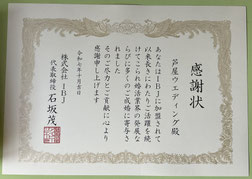 感謝状
芦屋ウエディング殿
あなたはIBJに加盟されて
以来長きにわたりご活躍を続
けてこられ婚活業界の発展な
らびに多くのご成婚に寄与さ
れました
そのご尽力とご貢献に心より
感謝申し上げます
令和七年十月吉日
株式会社IBJ
代表取締役 石坂茂